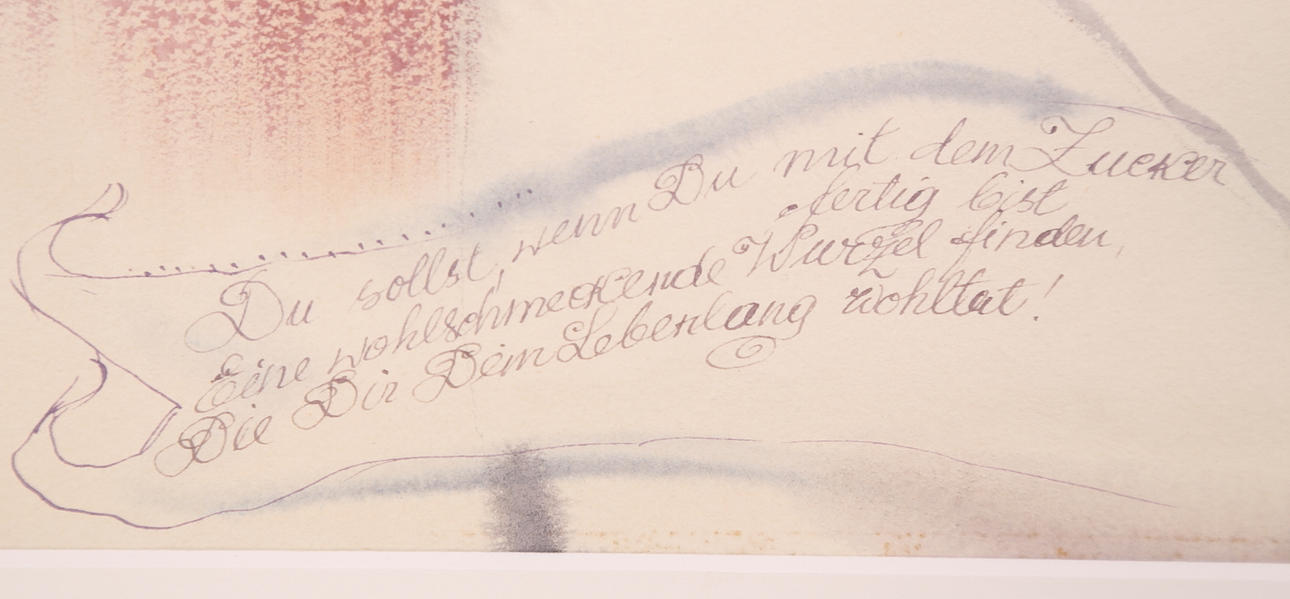 Du sollst, wenn Du mit dem Zucker
fertig bist
Eine wohlschmeckende Wurzel finden,
Die Dir Dein Lebenlang wohltat!